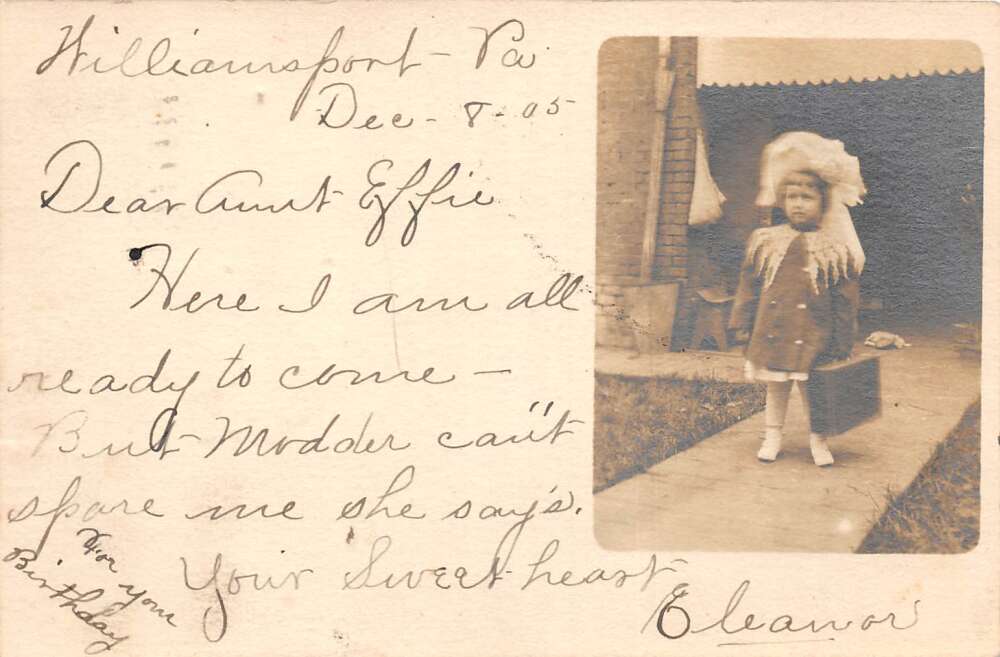 Williamsport - Pa
Dec - 8 - 05
Dear Aunt Effie
Here I am all
ready to come -
But Modder can"t
spare me she say's.
Your Sweet heart
Eleanor
For your
Birthday